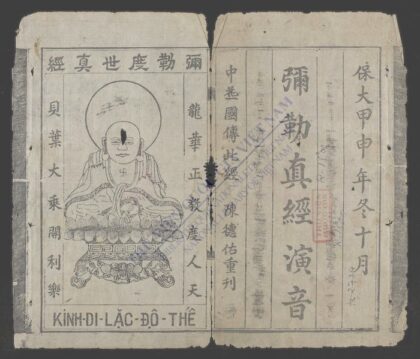 保大甲申年冬十月
彌勒真經演音
國傳此經 陳德佑重刊
彌勒度世真經
龍華正教度人天
貝葉大乘開利樂
卍
KINH-DI-LẶC-ĐỘ-THẾ
VIỆT NAM